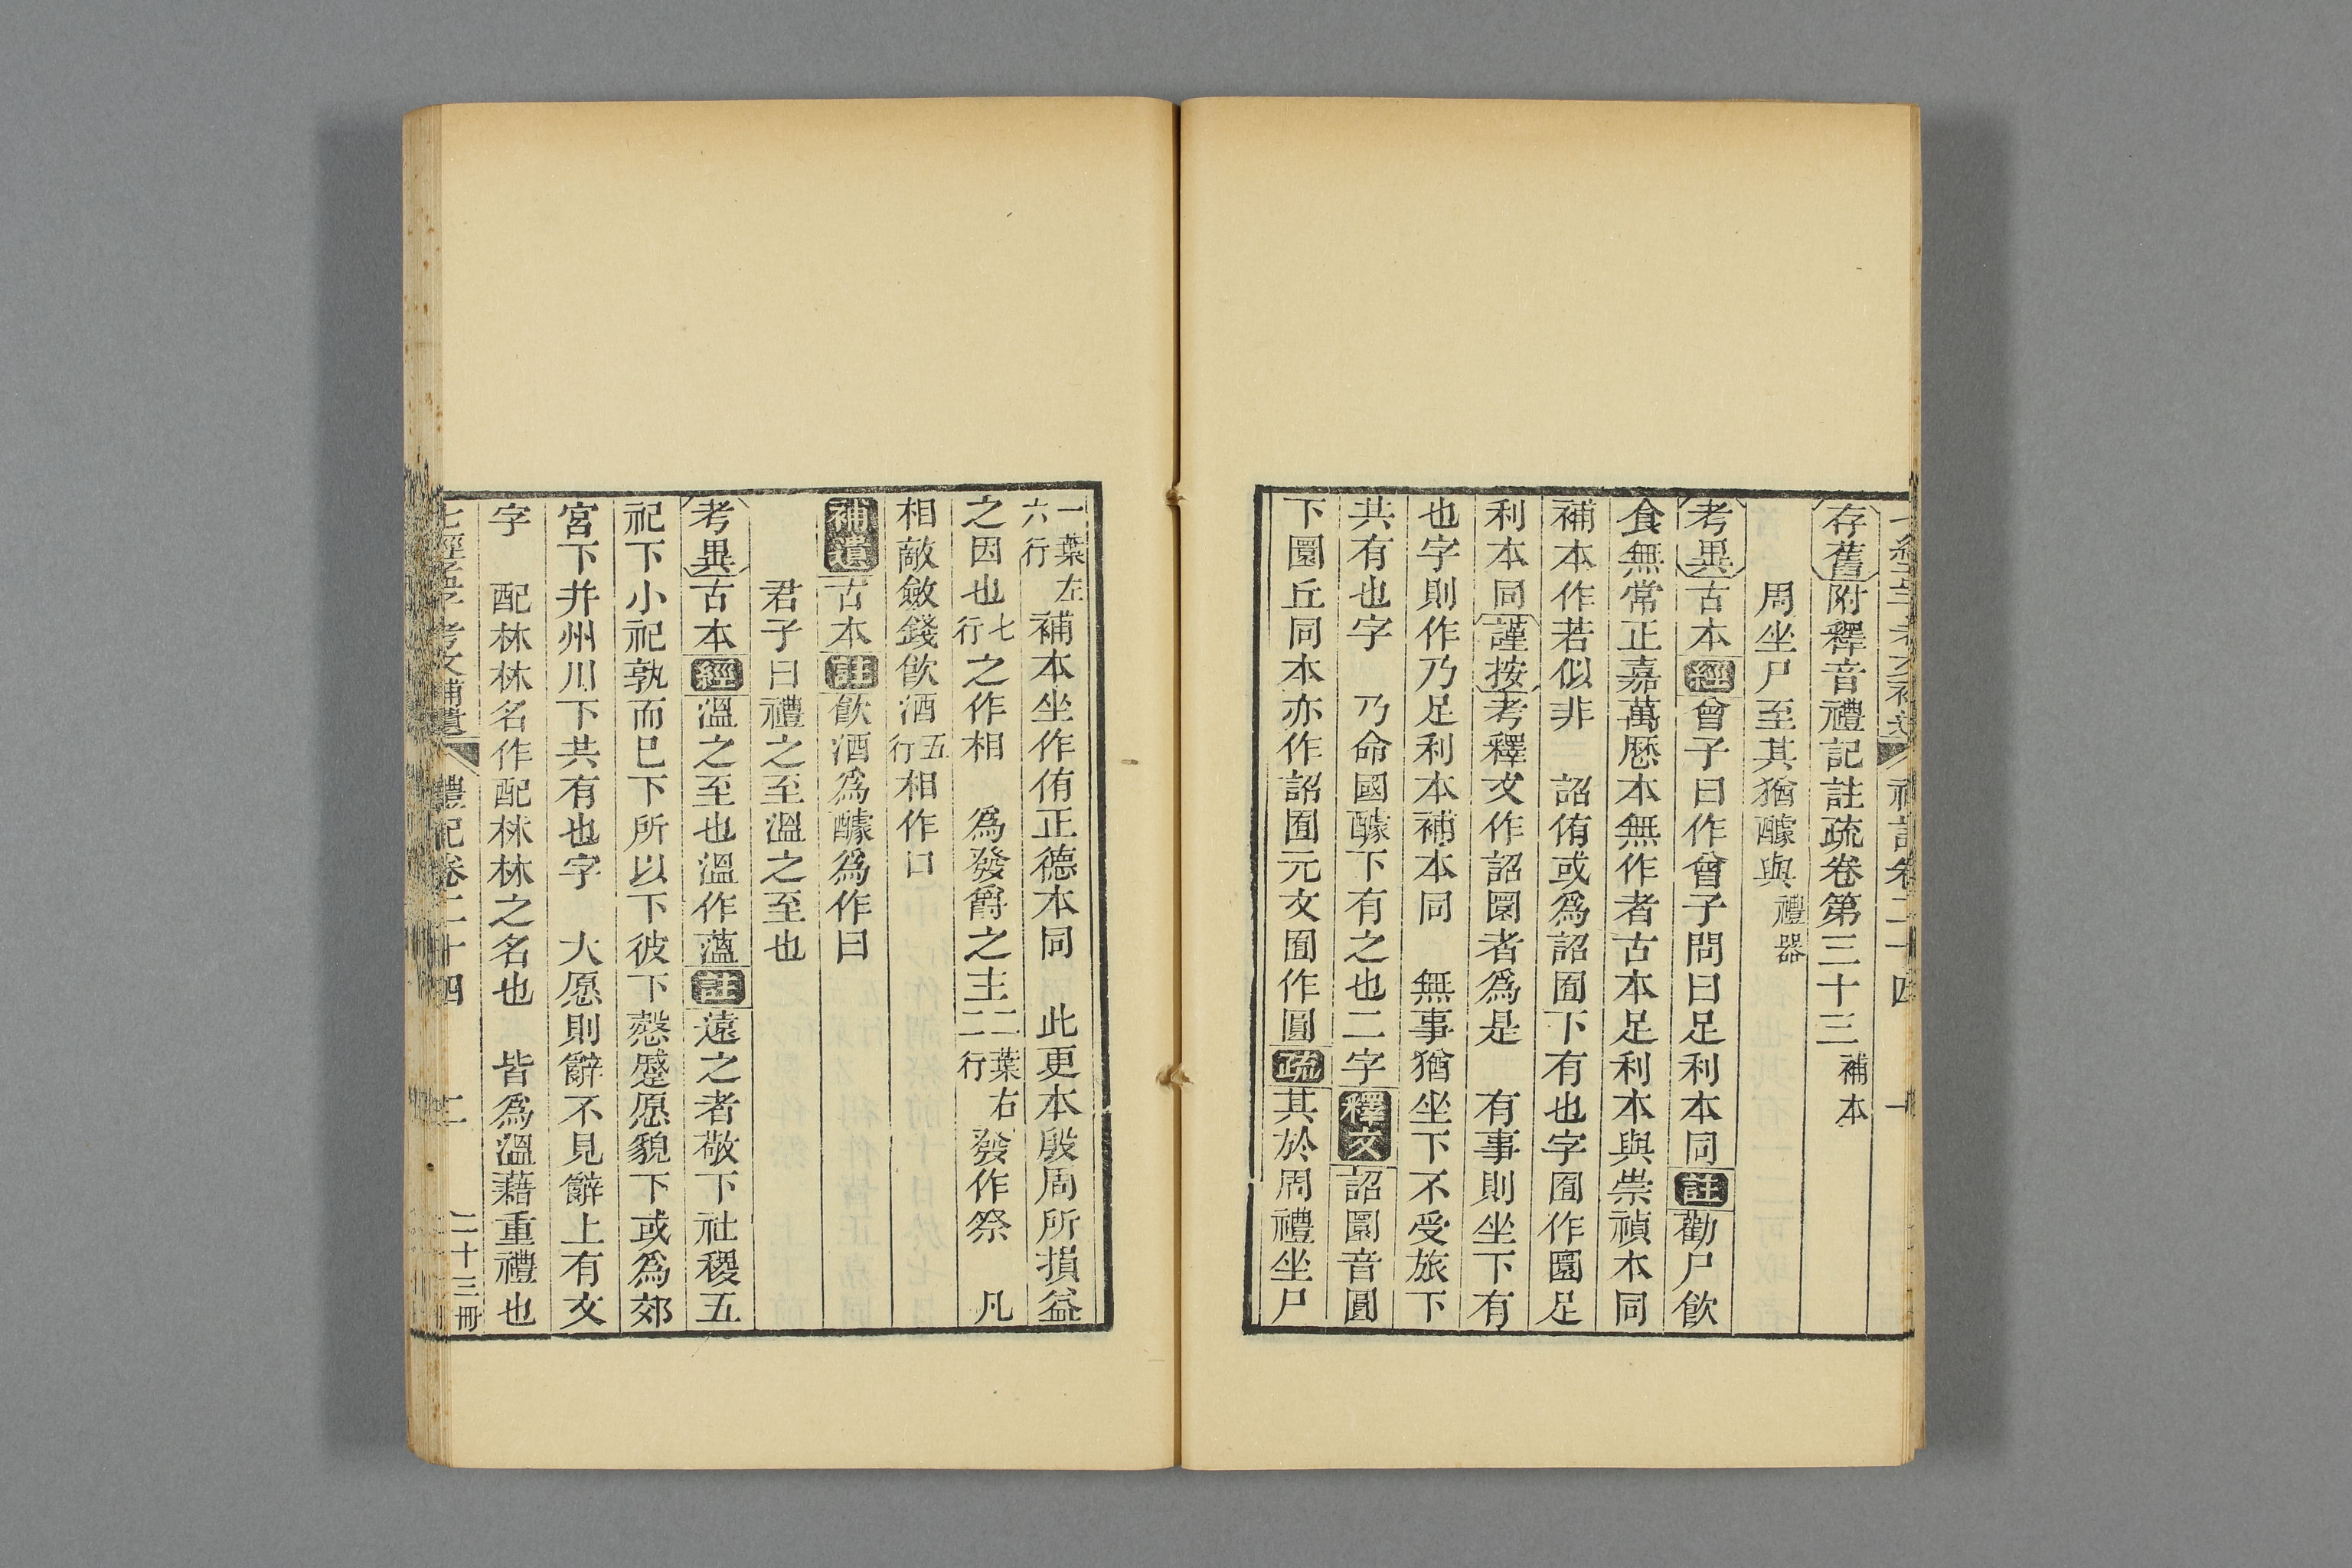 存舊附釋音禮記註疏卷第三十三補本
周坐尸至其猶醵與禮器
考異古本經曾子曰作曾子問曰足利本同註勸尸飮
食無常正嘉萬歷本無作者古本足利本與崇禎本同
補本作若似非 詔侑或爲詔囿下有也字囿作圜足
利本同謹按考釋文作詔圜者爲是 有事則坐下有
也字則作乃足利本補本同 無事猶坐下不受旅下
共有也字 乃命國醵下有之也二字釋文詔圜音圓
下圜丘同本亦作詔囿元文囿作圓疏其於周禮坐尸
一葉左六行補本坐作侑正德本同 此更本殷周所損益
之因也七行之作相 爲發爵之主二葉右二行發作祭 凡
相敵斂錢飮酒五行相作口
補遺古本註飮酒爲醵爲作曰
君子曰禮之至溫之至也
考異古本經溫之至也溫作薀註遠之者敬下社稷五
祀下小祀孰而巳下所以下彼下愨蹙愿貌下或爲郊
宮下并州川下共有也字 大愿則辭不見辭上有文
字 配林林名作配林林之名也 皆爲溫藉重禮也
禮記卷二十四 二 二十三冊